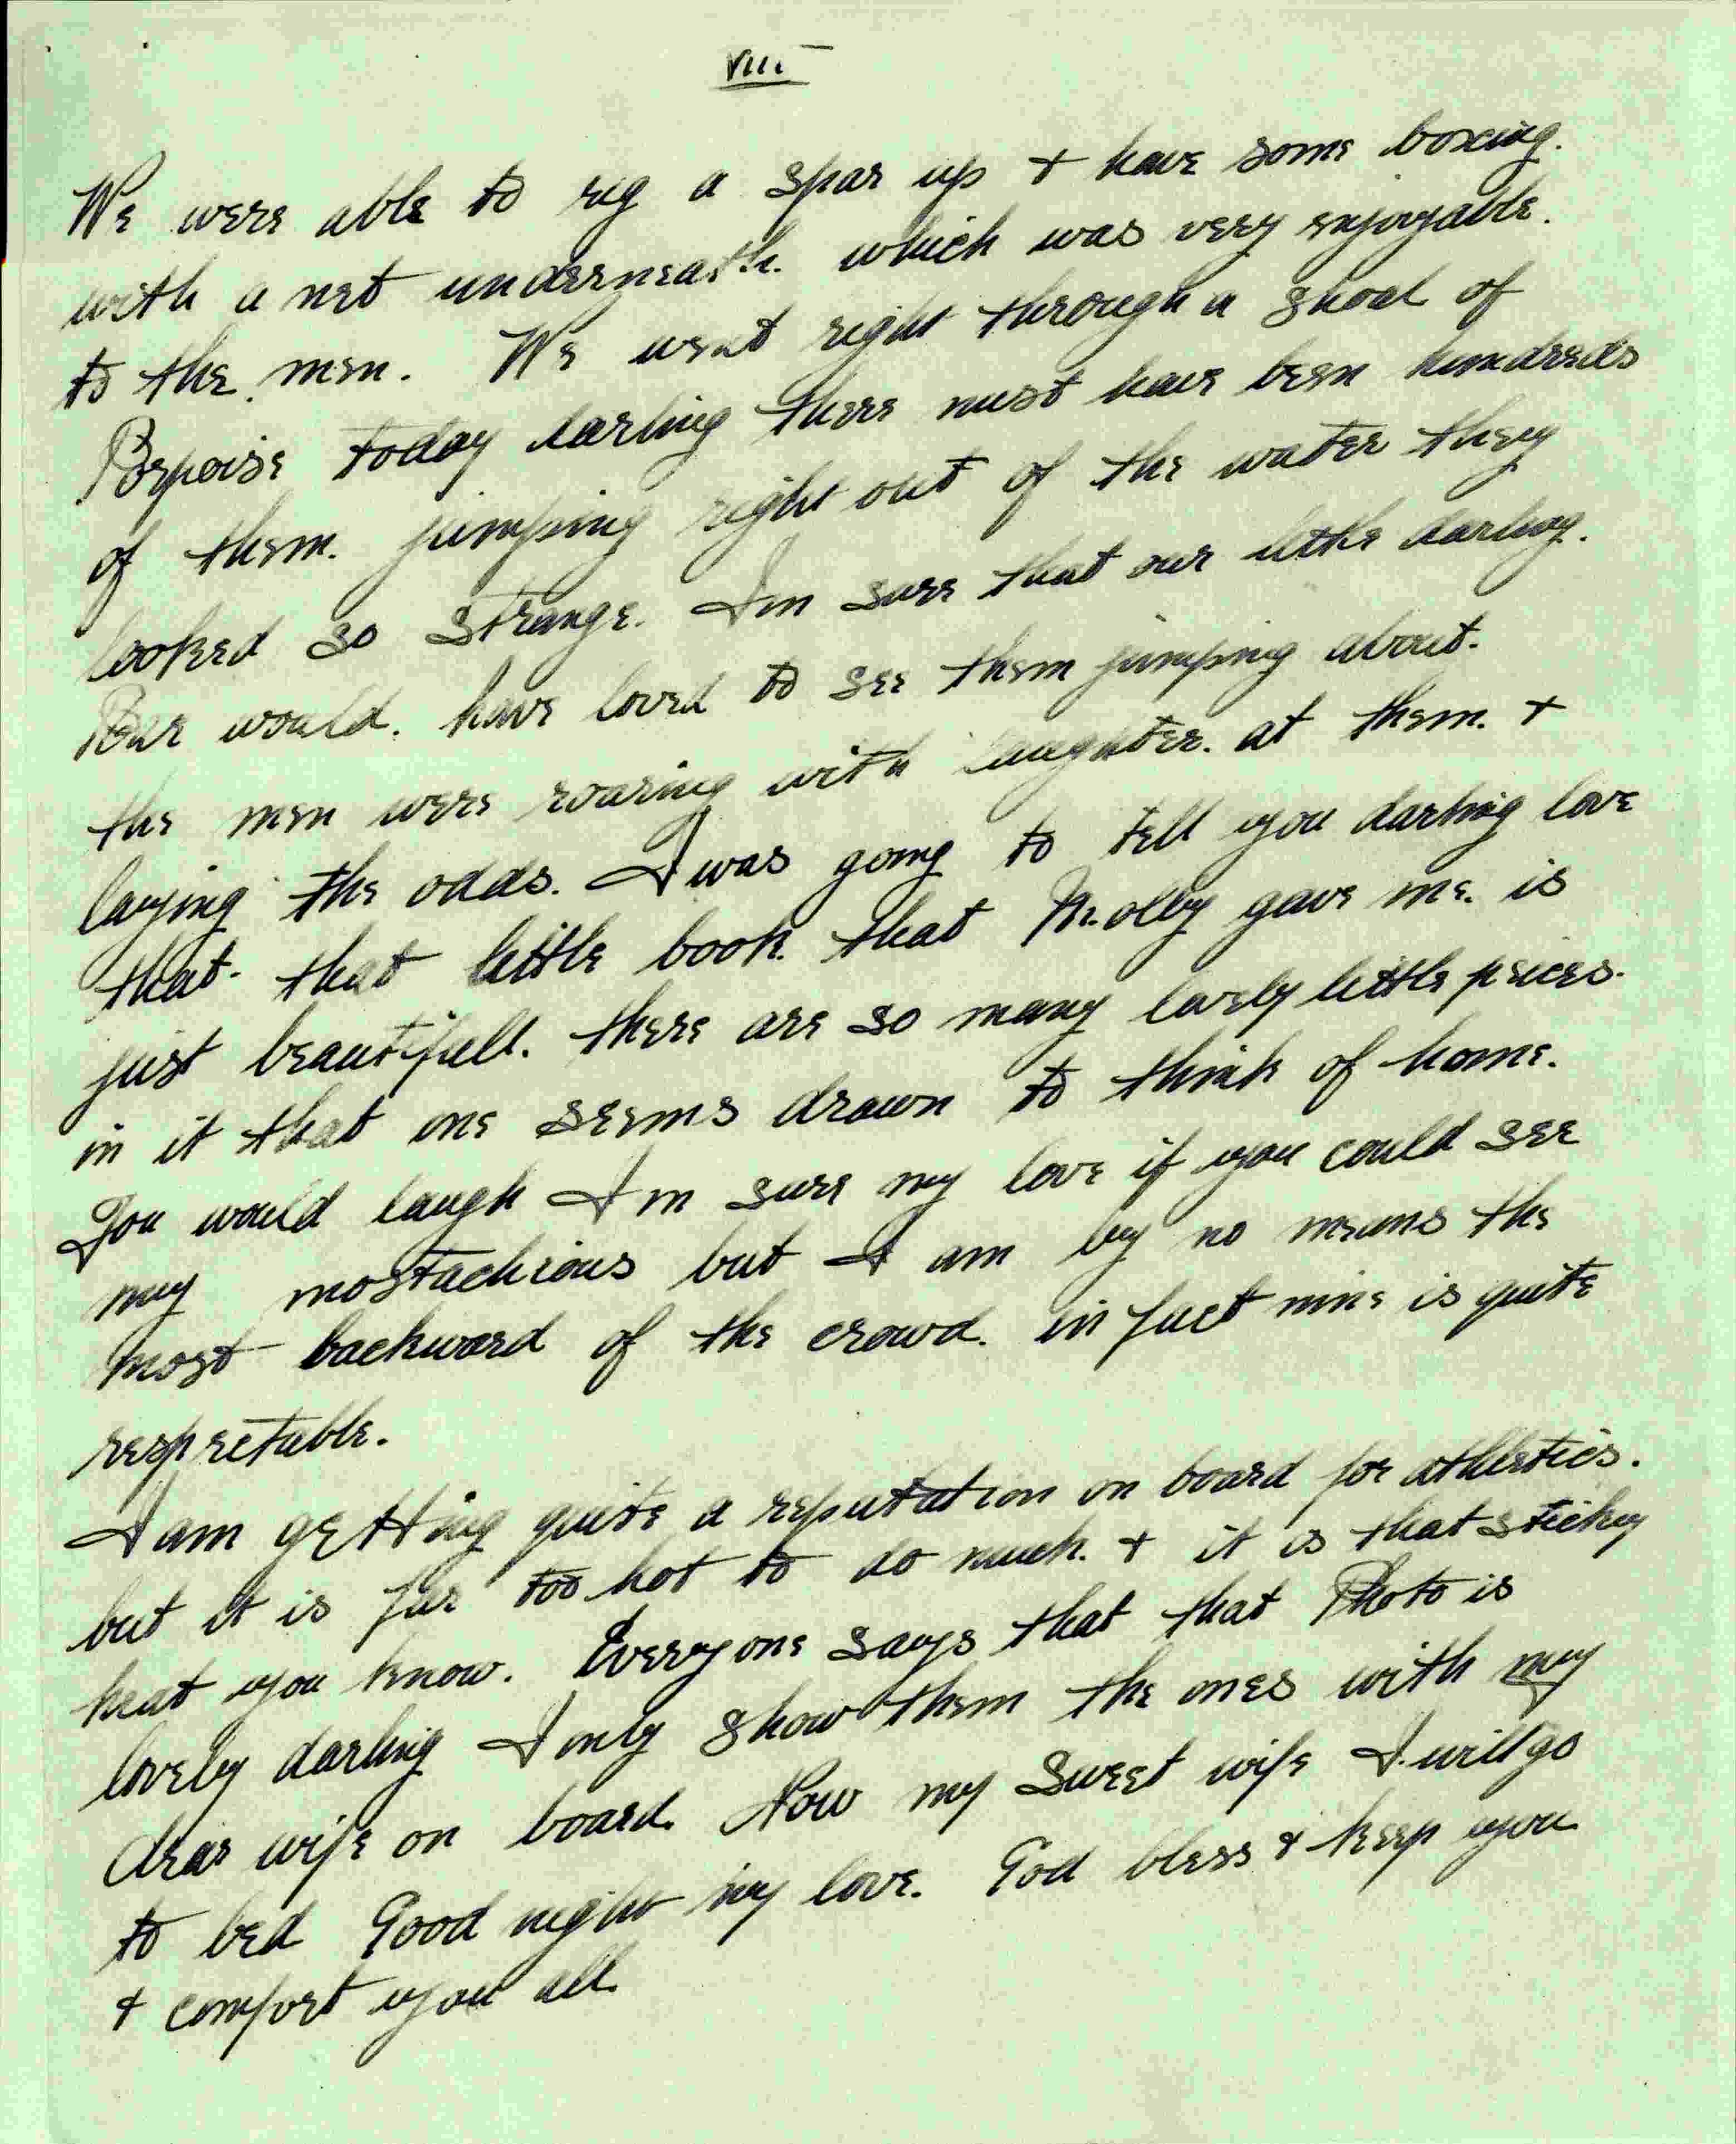 VIII
We were able to rig a spar up + have some boxing.
with a net underneath. which was very enjoyable.
to the men. We went right through a shoal of
Porpoise today darling there must have been hundreds
of them. jumping right out of the water they
looked so strange. Im sure that our little darling.
would. have loved to see them jumping about.
the men were roaring with laughter. at them. +
laying the odds. I was going to tell you darling love
that. that little book. that Molly gave me. is
just beautifull. there are so many lovely little pieces.
in it that one seems drawn to think of home.
You would laugh Im sure my love if you could see
my mostachious but I am by no means the
most backward of the crowd. in fact mine is quite
respectable.
I am getting quite a reputation on board for athletics.
but it is far too hot to do much. + it is that sticky
heat you know. Everyone says that that Photo is
lovely darling I only show them the ones with my
dear wife on board. Now my sweet wife I will go
to bed Good night my love. God bless & keep you
+ comfort you all.